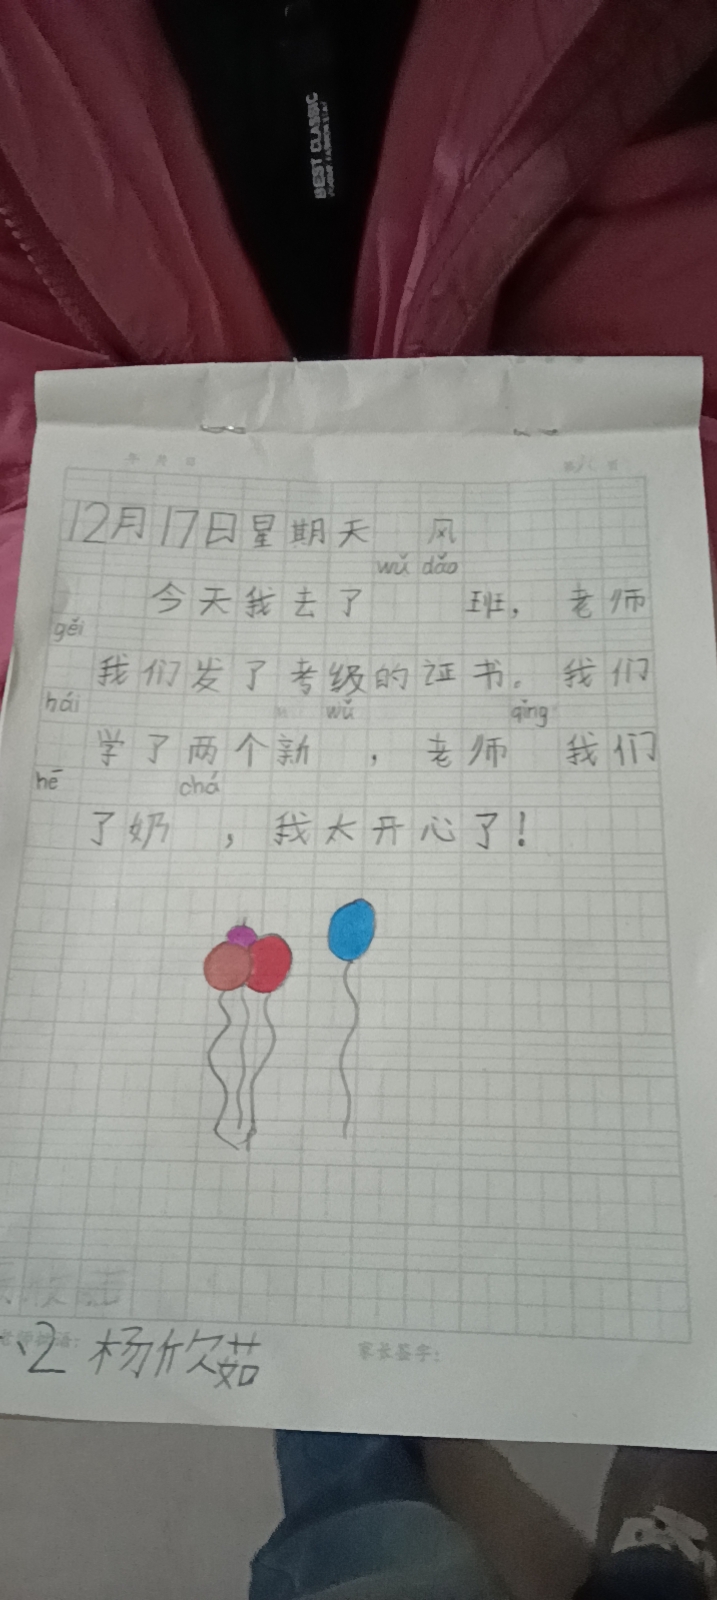 BEST CLASSIC
年 月 日
12月17日星期天 风
wǔ dǎo
今天我去了 班，老师
gěi
我们发了考级的证书。我们
hái wǔ qǐng
学了两个新 ，老师 我们
hē chá
了奶 ，我太开心了！
2 杨欣茹
家长签字：